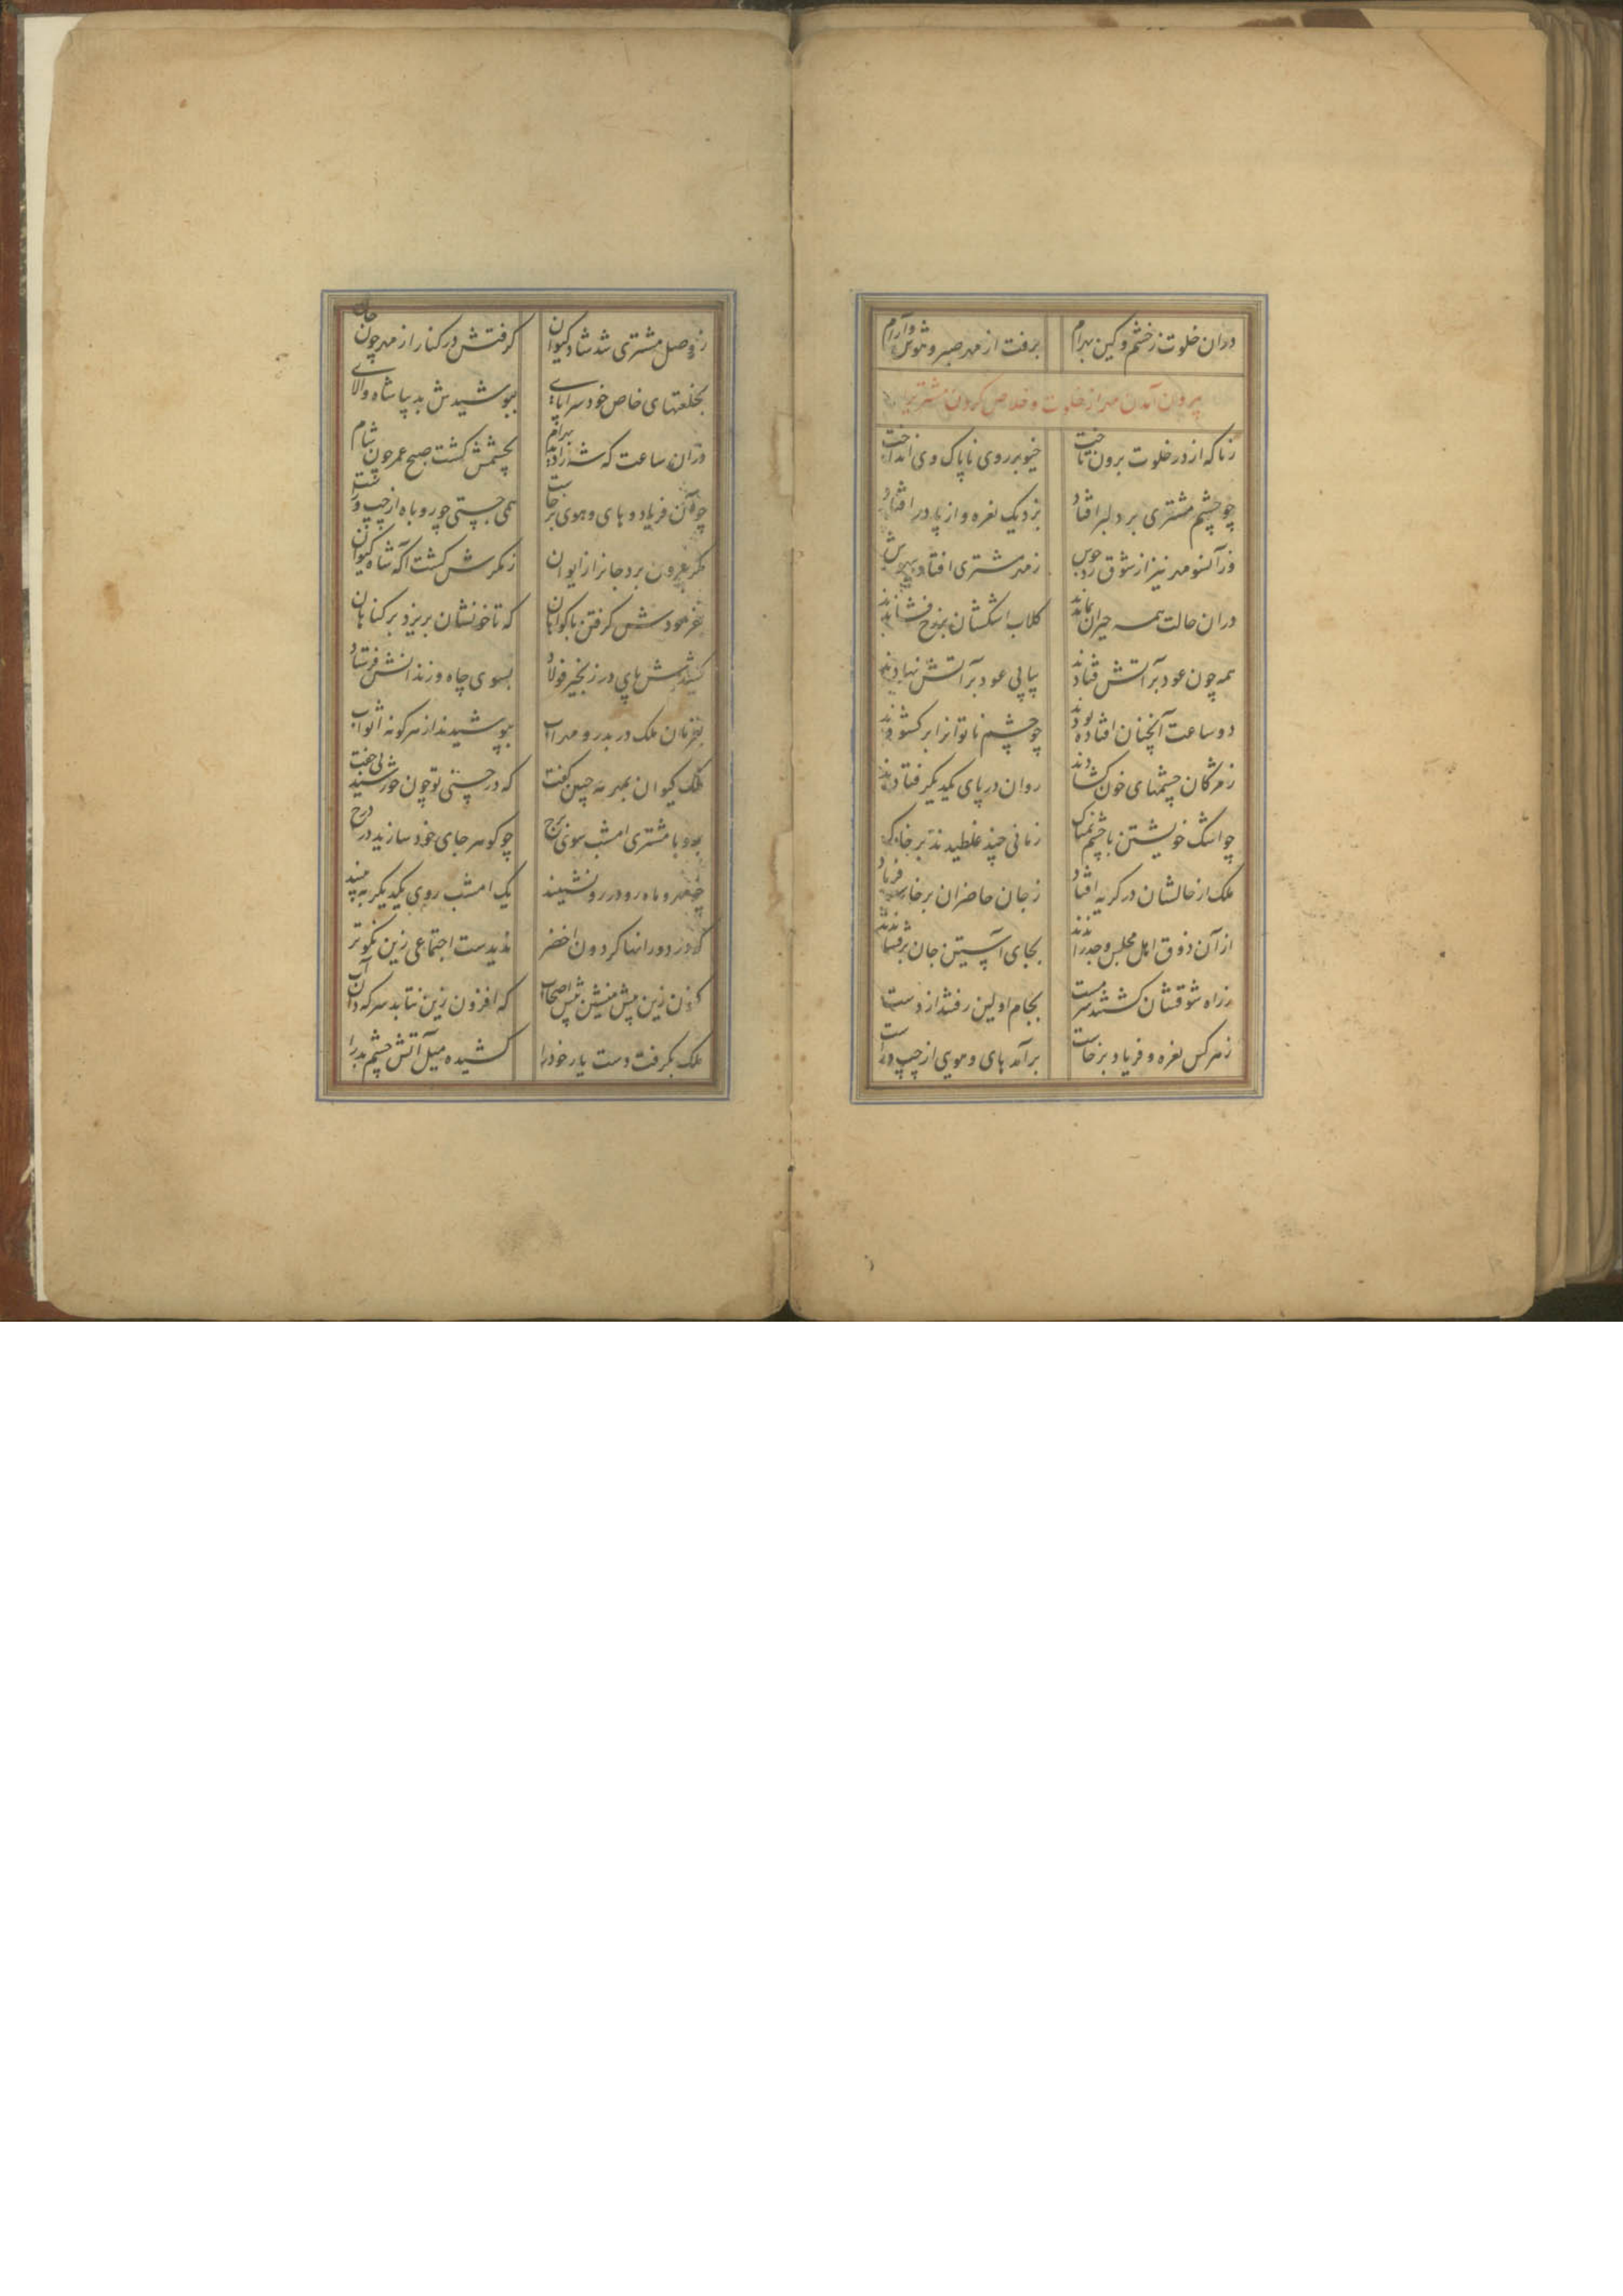 دران خلوت زخشم و کین بهرام برفت از مهر صبر و هوش و آرام
بیرون آمدن مهر از خلوت و خلاص کردن مشتری
زناکه از در خلوت برون تاخت خیو بر روی ناپاک وی انداخت
چو چشم مشتری بر دلبر افتاد بزد یک نعره و از پا در افتاد
وز آنسو مهر نیز از شوق زد جوش ز مهر مشتری افتاد بیهوش
دران حالت همه حیران بماندند گلاب اشکشان بر رخ فشاندند
همه چون عود بر آتش فتادند پیاپی عود بر آتش نهادند
دو ساعت آنچنان افتاده بودند چو چشم ناتوانرا بر گشودند
ز مژگان چشمهای خون گشادند روان در پای یکدیگر فتادند
چو اشک خویشتن با چشم نمناک زمانی چند غلطیدند بر خاک
ملک از حالشان در گریه افتاد ز جان حاضران برخاست فریاد
از آن ذوق اهل مجلس وجد راندند بجای آستین جان برفشاندند
ز راه شوقشان گشتند سرمست بجام اولین رفتند از دست
ز هر کس نعره و فریاد برخاست برآمد های و هوی از چپ و راست
ز وصل مشتری شد شاد کیوان گرفتش در کنار از مهر چون جان
بخلعتهای خاص خود سراپای بپوشیدش بدیبا شاه والای
دران ساعت که شد زاد بهرام بچشمش گشت صبح عمر چون شام
چو آن فریاد و های و هوی برخاست همی جستی چو روباه از چپ و راست
مگر بیرون برد جانرا ز ایوان ز مکرش گشت آگه شاه کیوان
بفرمودش گرفتن با گواهان که تا خونشان بریزد بر گناهان
کشیدش پای در زنجیر فولاد بسوی چاه و زندانش فرستاد
بفرمان ملک در بدر و مهراب بپوشیدند از هر گونه اثواب
ملک کیوان بمهر مه جبین گفت که در حسنی تو چون خورشید بی جفت
برو با مشتری امشب سوی برج چو گوهر جای خود سازید در درج
چو مهر و ماه رو در رو نشینید یک امشب روی یکدیگر ببینید
که در دورانها گردون اخضر ندیدست اجتماعی زین نکوتر
کنون زین بیش منشین پیش اصحاب که افزون زین نتابد هر که دان آن
ملک بگرفت دست یار خود را کشیده میل آتش چشم بد را